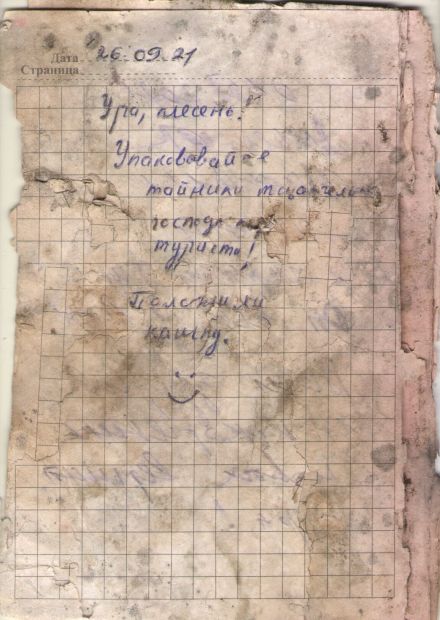 Дата 26.09.21
Страница
Ура, плесень!
Упаковывайте
тайники тщательно
господа
туристы!
Положили